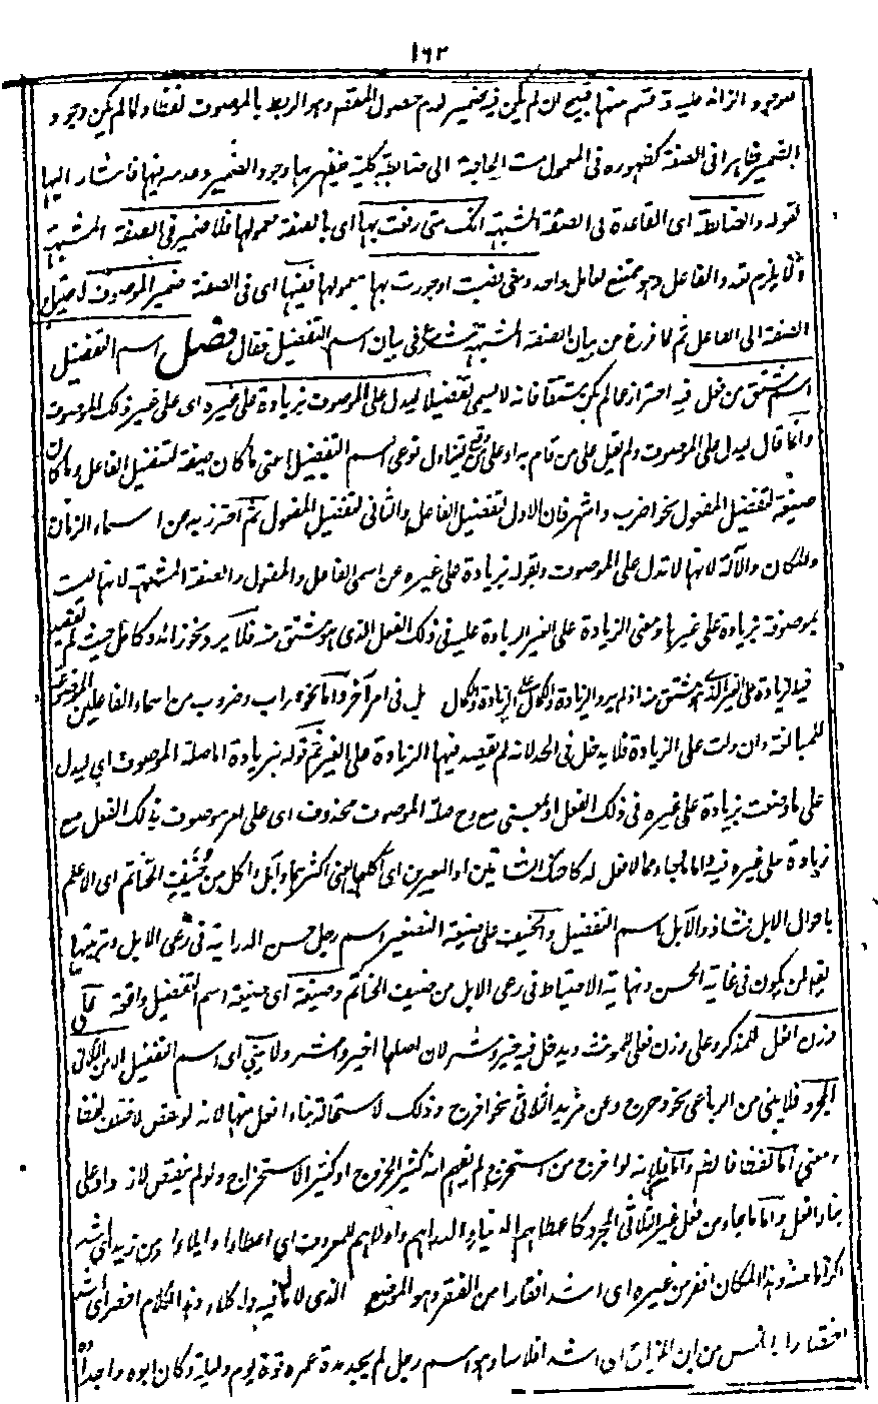 ١٦٢
موجود الزائد عليه وقسم منها قبيح لان لم يكن فيه ضمير لعدم حصول المقصود وهو الربط بالموصوف لفظا ولما لم يكن وجود
الضمير ظاهرا فى الصفة كظهوره فى المعمول مست الحاجة الى ضابطة كلية يظهر بها وجود الضمير وعدمه فيها فاشار اليها
بقوله والضابطة اى القاعدة فى الصفة المشبهة انك متى رفعت بها اى بالصفة معمولها فلا ضمير فى الصفة المشبهة
والا يلزم تعدد الفاعل وهو ممتنع لعامل واحد ومتى نصبت او جررت بها معمولها ففيها اى فى الصفة ضمير الموصوف
الصفة الى الفاعل ثم لما فرغ من بيان الصفة المشبهة شرع فى بيان اسم التفضيل فقال فصل اسم التفضيل
اسم مشتق من فعل فيه احتراز عما لم يكن مشتقا فانه لا يسمى تفضيلا ليدل على الموصوف بزيادة على غيره اى على غير ذلك الموصوف
وانما قال ليدل على الموصوف ولم يقل على من قام به او على من وقع ليتناول نوعى اسم التفضيل اعنى ما كان صيغة لتفضيل الفاعل وما كان
صيغة لتفضيل المفعول نحو اضرب واشهر فان الاول لتفضيل الفاعل والثانى لتفضيل المفعول ثم احترز به عن اسماء الزمان
والمكان والآلة لانها لا تدل على الموصوف وبقوله بزيادة على غيره عن اسمى الفاعل والمفعول والصفة المشبهة لانها ليست
بموصوفة بزيادة على غيرها ومعنى الزيادة على الغير الزيادة عليه فى ذلك الفعل الذى هو مشتق منه فلا يرد نحو زائد وكامل حيث لم يقصد
فيه الزيادة على الغير الذى مشتق منه اذ لم يرد الزيادة والكمال على الزيادة والكمال بل فى امر آخر واما نحو ضراب وضروب من اسماء الفاعلين الموضوعة
للمبالغة وان دلت على الزيادة فلا يدخل فى الحد لانه لم يقصد فيها الزيادة على الغير ثم قوله بزيادة اما صلة الموصوف اى ليدل
على ما وصفت بزيادة على غيره فى ذلك الفعل او بمعنى مع وح صلة الموصوف محذوف اى على امر موصوف بذلك الفعل مع
زيادة على غيره فيه واما ما جاء مما لا فعل له كاحنك الشاتين او البعيرين اى آكلهما يعنى اكثرهما وآبل وآكل من حنيف الحناتم اى الاعلم
باحوال الابل فشاذ والآبل اسم التفضيل والحنيف على صيغة التصغير اسم رجل حسن الدراية فى رعى الابل وتربيتها
يقع لمن يكون فى غاية الحسن ونهاية الاحتياط فى رعى الابل من حنيف الحناتم وصيغة اى صيغة اسم التفضيل واقعة على
وزن افعل للمذكر وعلى وزن فعلى للمؤنث ويدخل فيه خير وشر لان اصلهما اخير واشر ولا يبنى اى اسم التفضيل الا من الثلاثى
المجرد فلا يبنى من الرباعى نحو دحرج وعن مزيد الثلاثى نحو افرج وذلك لاستحالة بناء افعل منها لانه لو نقص لاختلف لفظا
ومعنى اما لفظا فالظ واما معنى فلانه لو اخرج من استخرج لم يفهم انه كثير الخروج او كثير الاستخراج ولو لم ينقص لزاد على
بناء افعل واما ما جاء من فعل غير الثلاثى المجرد كاعطاهم الدينار والدراهم واولاهم للمعروف اى اعطاء وايلاء ومن زيد اى اشد
اكراما منه وهذا المكان افقر من غيره اى اشد افقارا من الفقر وهو الموضع الذى لا ماء فيه ولا كلاء وهذا الكلام اخصر اى اشد
اختصارا وافلس من ابن المذلق اى اشد افلاسا وهو اسم رجل لم يجد مدة عمره قوة يوم وليلة وكان ابوه واجداده